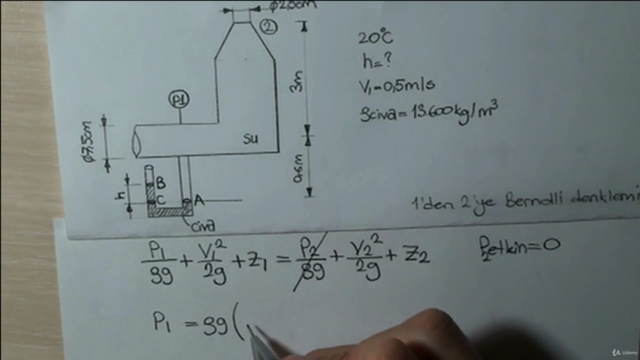 φ2,0cm
②
20°C
h=?
V₁=0,5m/s
ρciva=13600kg/m³
3m
P1
φ7,5cm
su
0,6m
h
B
C
A
civa
1'den 2'ye Bernolli denklemi
P₁/ρg + V₁²/2g + Z₁ = P₂/ρg + V₂²/2g + Z₂ P₂etkin=0
P₁ = ρg(
Udemy